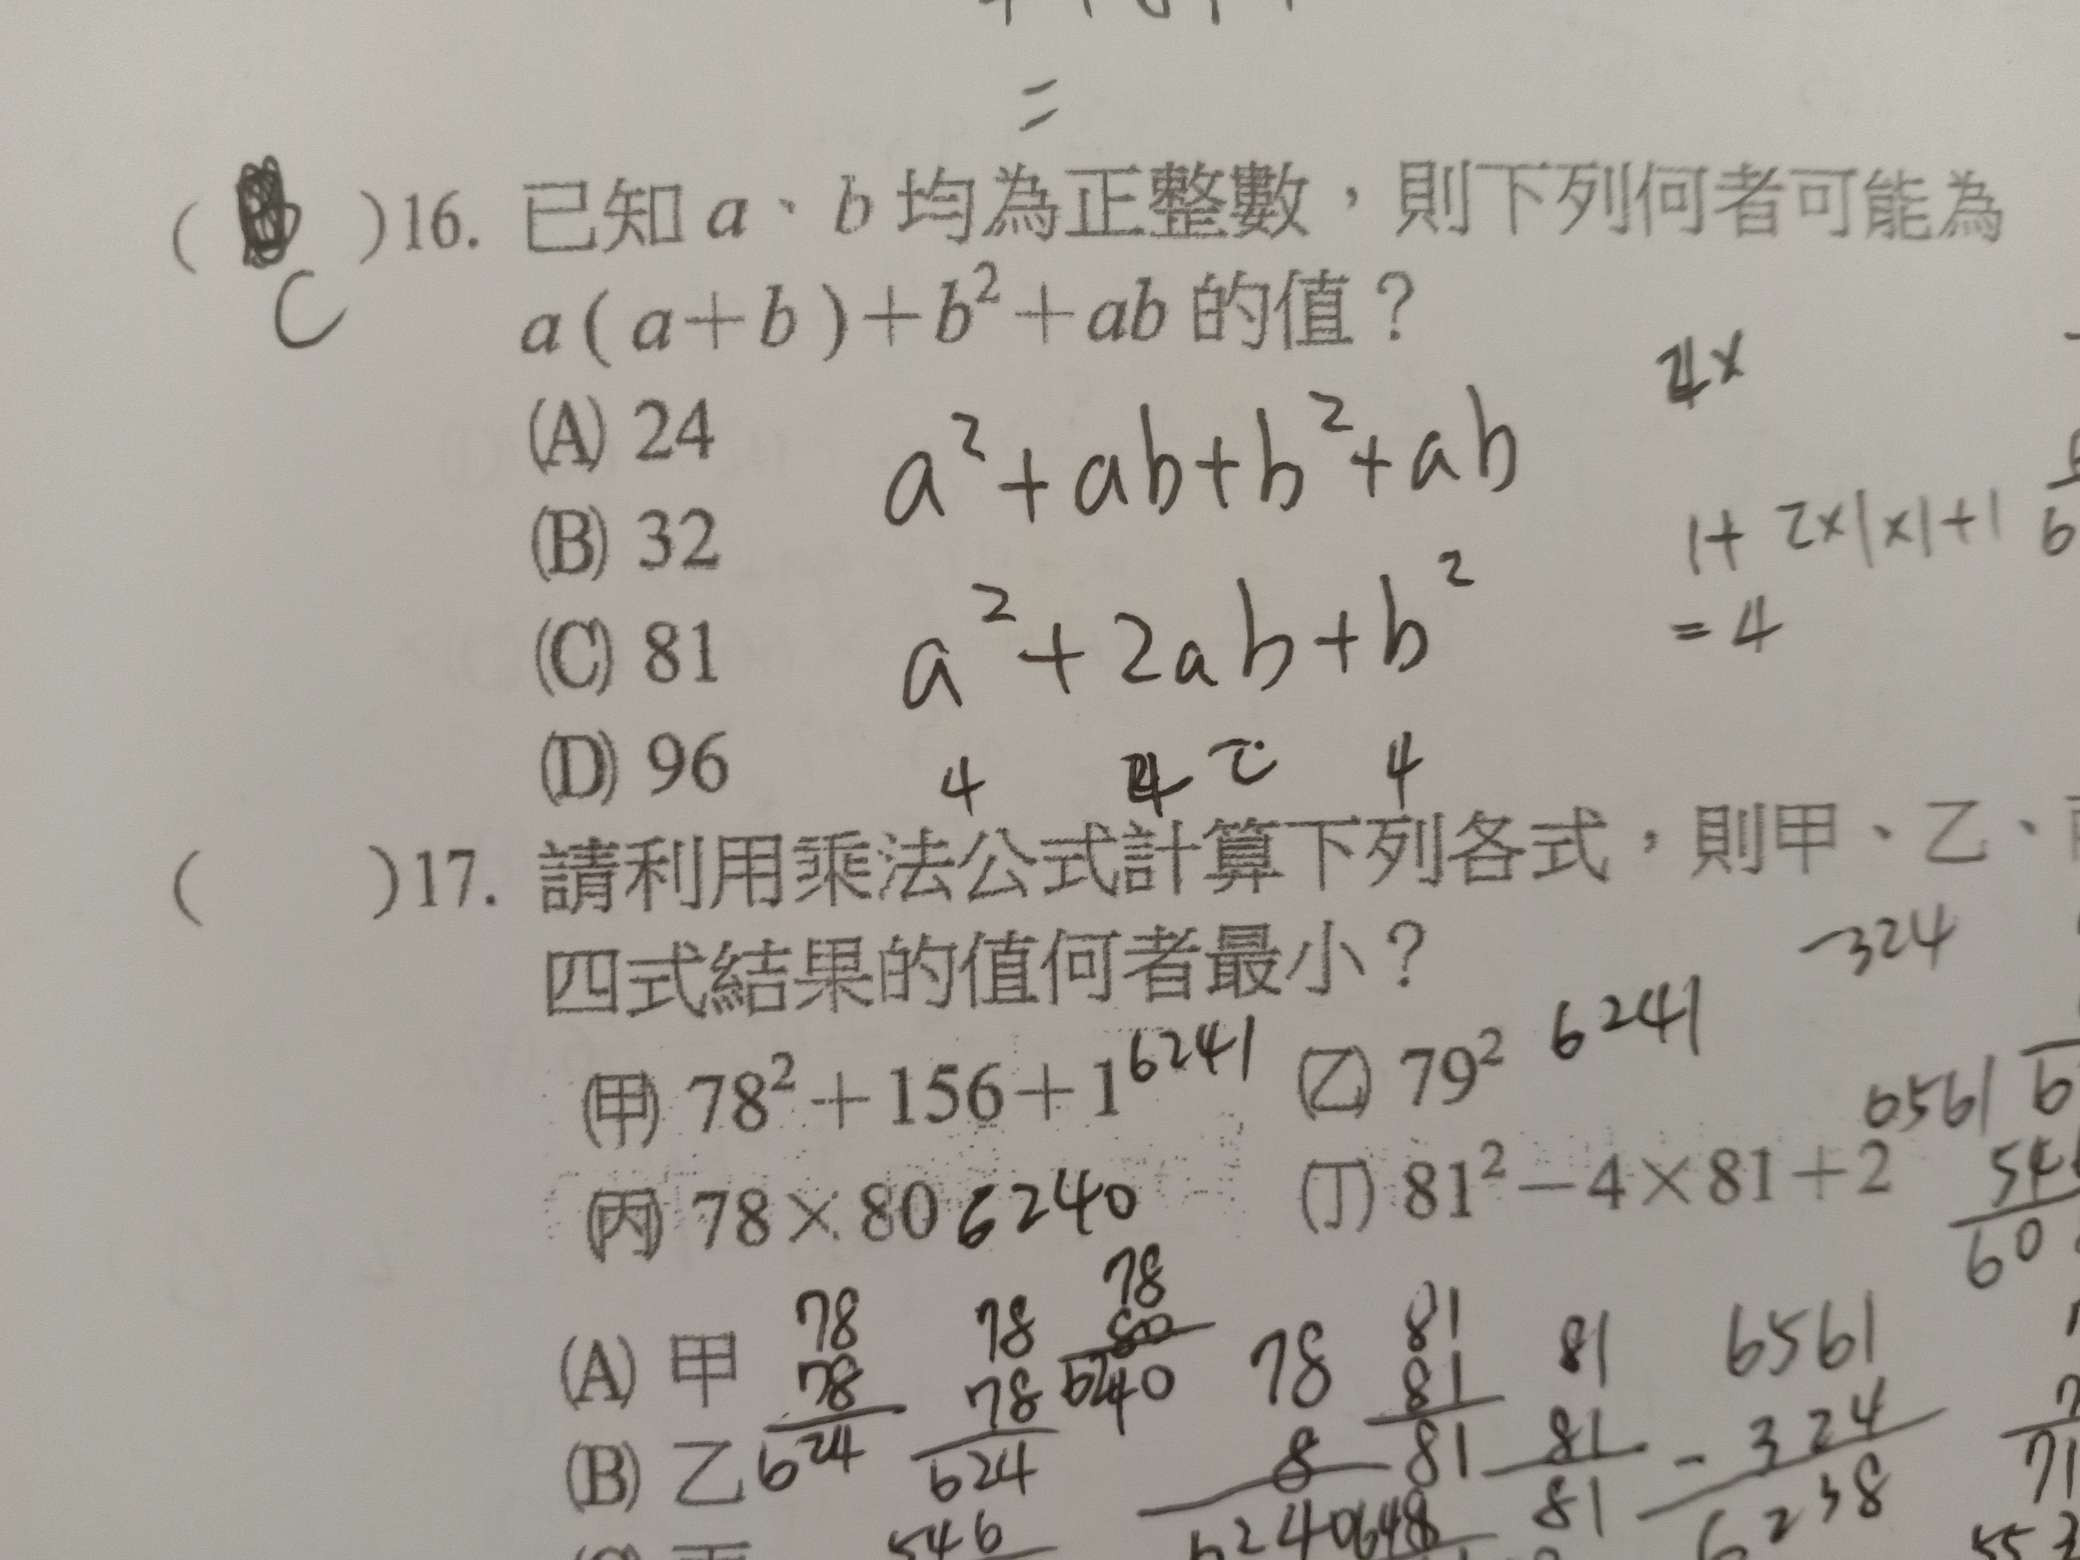 =
( C )16. 已知 a、b 均為正整數，則下列何者可能為
a(a+b)+b²+ab 的值？
4x
(A) 24
a²+ab+b²+ab
(B) 32
1+2×1×1+1
=4
(C) 81
a²+2ab+b²
(D) 96
4 4 2 4
( )17. 請利用乘法公式計算下列各式，則甲、乙、
四式結果的值何者最小？
-324
(甲) 78²+156+1 6241 (乙) 79² 6241
6561
(丙) 78×80 6240 (丁) 81²-4×81+2
546
60
(A) 甲
78
78
624
78
78
624
78
80
6240
78
8
6240
81
81
81
648
81
81
81
6561
-324
6238
(B) 乙
546